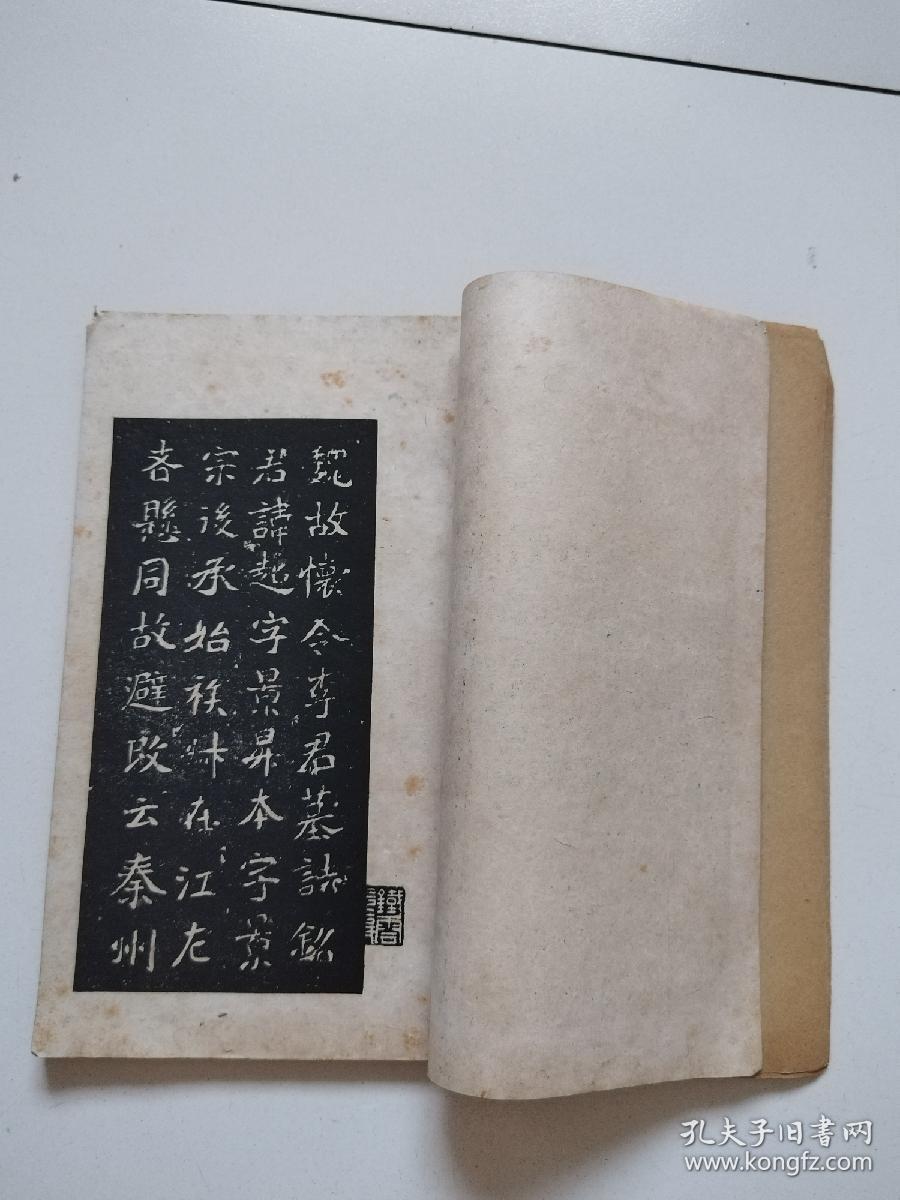 魏故懷令李君墓誌銘
君諱超字景昇本字景
宗後承始族叔在江左
者懸同故避改云秦州
鐵雲
孔夫子旧书网
www.kongfz.com